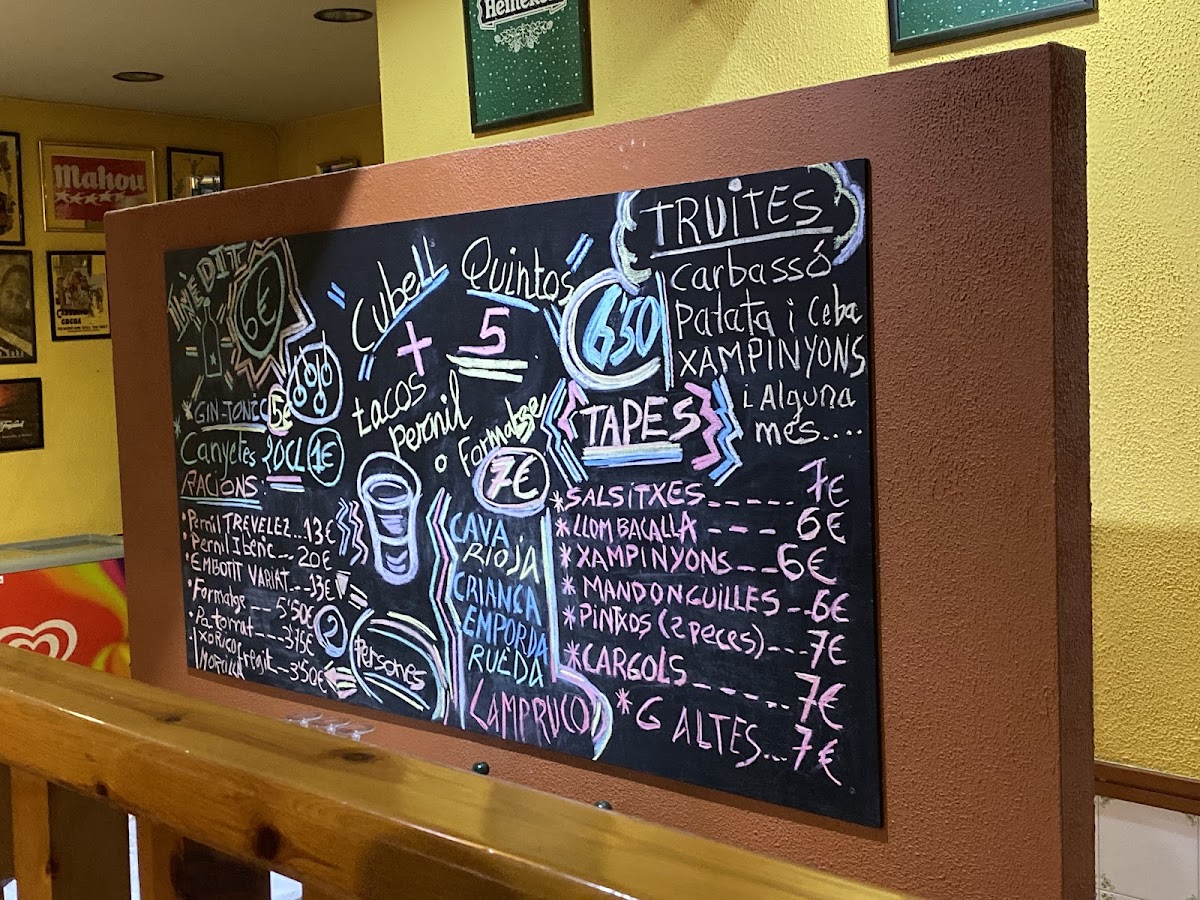 Heineken
Mahou
INÈDIT
6€
GIN-TONIC 5€
Canyetes 20CL 1€
RACIONS
·Pernil TREVELEZ...13€
·Pernil IBèric...20€
·EMBOTIT VARIAT---13€
·Formatge --- 5'50€
·Patornat---3'75€
XORICO fregit---3'50€
MORCILLA
2
Persones
Cubell Quintos
+ 5
650
tacos
Pernil
o Formatge
7€
CAVA
RiOJA
CRIANÇA
EMPORDA
RUEDA
LAMPRUCO
TRUITES
Carbassó
Patata i Ceba
XAMPINYONS
i Alguna
més....
TAPES
*SALSITXES----- 7€
*LLOM BACALLA --- 6€
*XAMPINYONS---6€
*MANDONGUILLES--6€
*PINTXOS (2 peces)---7€
*CARGOLS ----7€
*GALTES...7€